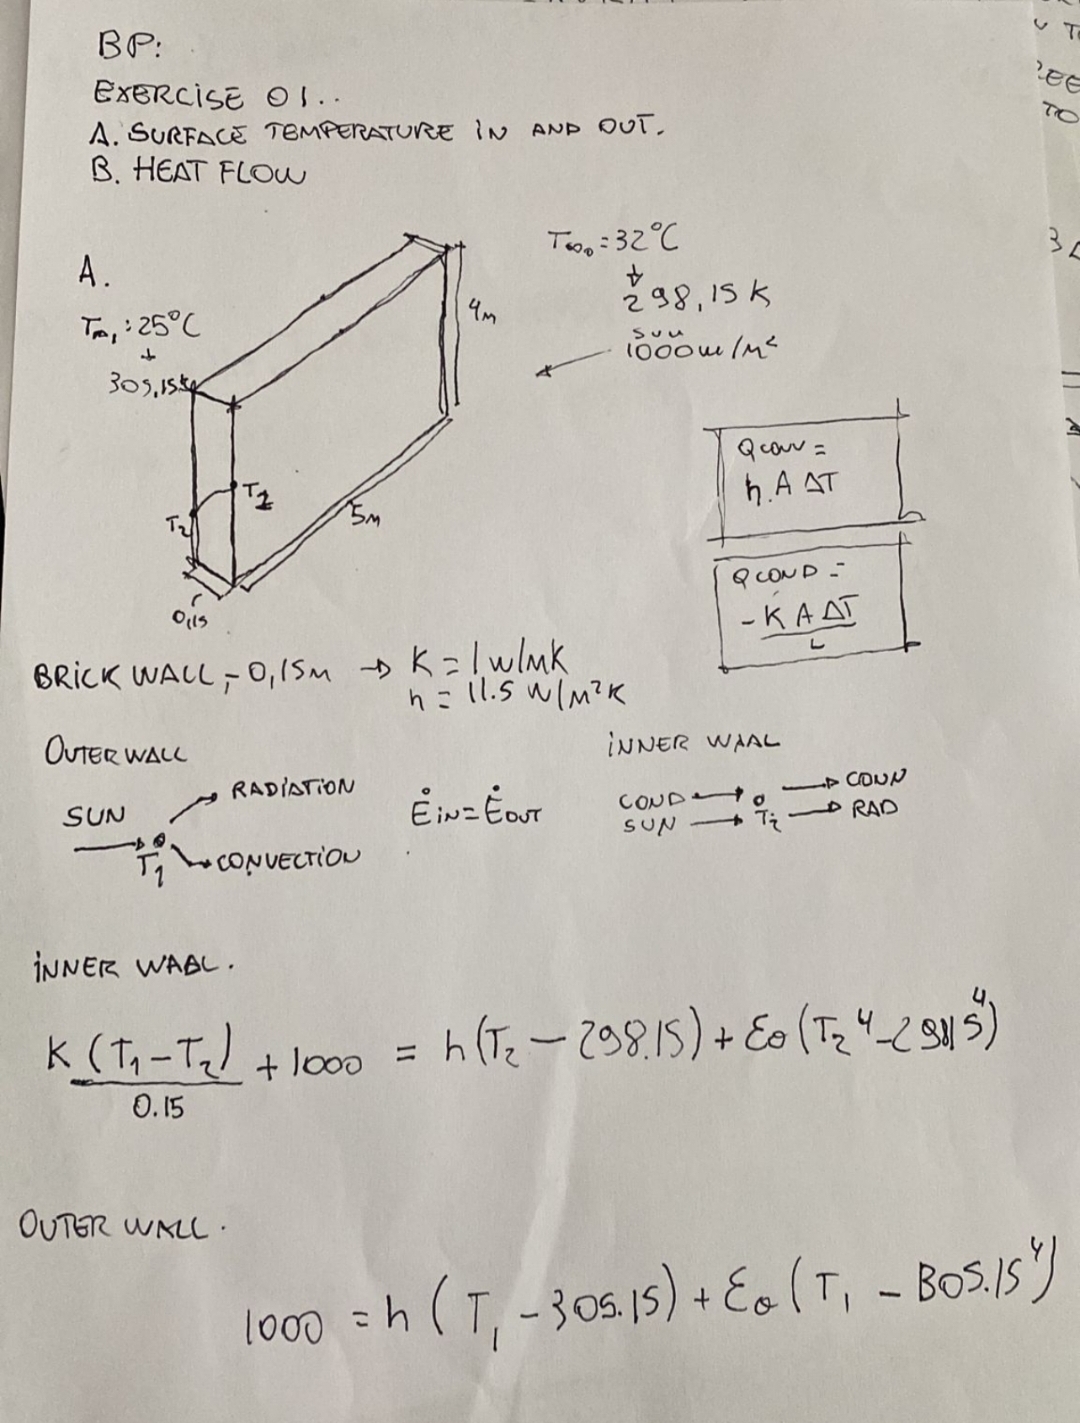 BP:
EXERCISE 01..
A. SURFACE TEMPERATURE IN AND OUT.
B. HEAT FLOW
A.
T∞₁ : 25°C
305,15K
T∞₀ = 32°C
298,15 K
SUN
1000 w/m²
4m
T₂
T1
5m
0,15
Q conv =
h. A ΔT
Q COND =
- K A ΔT
L
BRICK WALL, - 0,15m → K = 1 W/mK
h = 11.5 W/m²K
OUTER WALL
SUN
RADIATION
T₁
CONVECTION
Ėin = Ėout
INNER WAAL
COND → o → CONV
SUN → T₂ → RAD
INNER WAAL.
K (T₁ - T₂) + 1000 = h(T₂ - 298.15) + Ɛσ (T₂⁴ - 29815⁴)
0.15
OUTER WALL.
1000 = h ( T₁ - 305.15) + Ɛσ (T₁ - 305.15⁴)